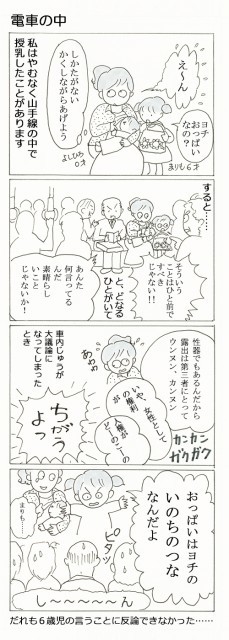 電車の中
私はやむなく山手線の中で
授乳したことがあります
しかたがない
かくしながらあげよう
え〜ん
ヨチ
おっぱい
なの?
よしひろ
0才
まりも6才
すると……
そういう
ことはひと前で
すべき
じゃない!!
と、どなる
ひとがいて
あんた
何言ってる
んだ
素晴らし
いこと
じゃないか!
性器でもあるんだから
露出は第三者にとって
ウンヌン、カンヌン
いや、女性として
の権利
が
あわわ
カンカン
ガクガク
車内じゅうが
大議論に
なってしまった
とき
ちがう
よっ
おっぱいはヨチの
いのちのつな
なんだよ
まりも…
ピタッ
し〜〜〜〜〜ん
だれも6歳児の言うことに反論できなかった……